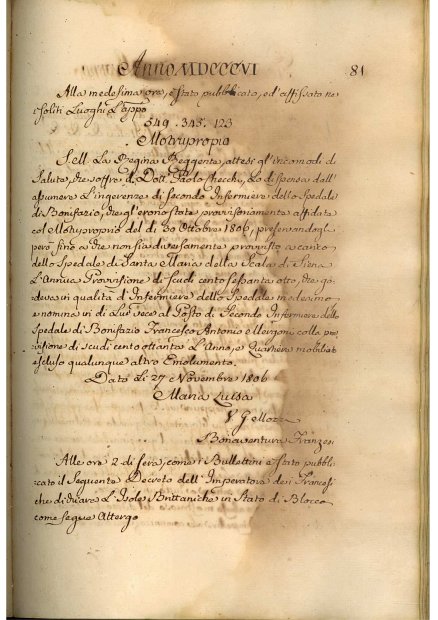 Anno MDCCCVI 81
Alla medesima ora, è stato pubblicato, ed affissato ne
soliti Luoghi L'appo
549. 345. 123
Motuproprio
S. M. La Regina Reggente, attesi gl'incomodi di
Salute, che soffre il Dott. Paolo Checchi, Lo dispensa dall'
assumere L'ingerenze di secondo Infermiere dello Spedale
di Bonifazio, che gl'erono state provvisoriamente affidate
col Motuproprio del dì 30 Ottobre 1806, preservandogli
però fino a che non sia diversamente provvisto a carico
dello Spedale di Santa Maria della Scala di Siena
L'Annua Provvisione di Scudi cento sessanta otto, che go-
deva in qualità d'Infermiere dello Spedale medesimo
e nomina in di Lui vece al Posto di Secondo Infermiere dello
Spedale di Bonifazio Francesco Antonio colla pro-
visione di Scudi cento ottanta L'Anno, e Quartiere mobiliat
escluso qualunque altro Emolumento.
Dato Li 27 Novembre 1806
Maria Luisa
V G Mozzi
Bonaventura Franzesi
Alle ore 2 di sera, come i Bullettini è stato pubbli-
cato il Seguente Decreto dell'Imperatore dei Francesi
che dichiara L'Isole Brittaniche in Stato di Blocco
come segue Attergo